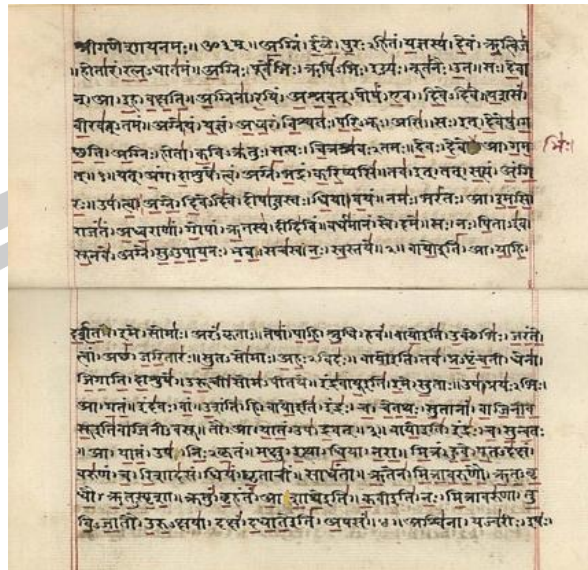 श्रीगणेशायनमः॥ॐ३म्॥अग्निं।ईळे।पुरःऽहितं।यज्ञस्य।देवं।ऋत्विजं
॥होतारं।रत्नऽधातमं॥अग्निः।पूर्वेभिः।ऋषिऽभिः।ईड्यः।नूतनैः।उत॥सः।देवा
न्।आ।इह।वक्षति॥अग्निना।रयिं।अश्नवत्।पोषं।एव।दिवेऽदिवे॥यशसं
वीरवत्ऽतमं॥अग्ने।यं।यज्ञं।अध्वरं।विश्वतः।परिऽभूः।असि॥सः।इत्।देवेषु।ग
च्छति॥अग्निः।होता।कविऽक्रतुः।सत्यः।चित्रश्रवःऽतमः॥देवः।देवे।आ।गम
भिः।
त्॥१॥यत्।अंग।दाशुषे।त्वं।अग्ने।भद्रं।करिष्यसि॥तव।इत्।तत्।सत्यं।अंगि
रः॥उप।त्वा।अग्ने।दिवेऽदिवे।दोषाऽवस्तः।धिया।वयं॥नमः।भरंतः।आ।इमसि
राजंतं।अध्वराणां।गोपां।ऋतस्य।दीदिविं॥वर्धमानं।स्वे।दमे॥सः।नः।पिताऽइव
सूनवे।अग्ने।सुऽउपायनः।भव॥सचस्व।नः।स्वस्तये॥२॥वायोइति।आ।याहि।
दर्शत।इमे।सोमाः।अरंऽकृताः॥तेषां।पाहि।श्रुधि।हवं॥वायोइति।उक्थेभिः।जरंते
त्वां।अच्छ।जरितारः॥सुतऽसोमाः।अहःऽविदः॥वायोइति।तव।प्रऽपृंचती।धेना
जिगाति।दाशुषे॥उरूची।सोमऽपीतये॥इंद्रवायूइति।इमे।सुताः॥उप।प्रयःऽभिः।
आ।गतं॥इंदवः।वां।उशंति।हि॥वायोइति।इंद्रः।च।चेतथः।सुतानां।वाजिनीव
सूइतिवाजिनीऽवसू॥तौ।आ।यातं।उप।द्रवत्॥३॥वायोइति।इंद्रः।च।सुन्वतः
॥आ।यातं।उप।निःऽकृतं॥मक्षु।इत्था।धिया।नरा॥मित्रं।हुवे।पूतऽदक्षं
वरुणं।च।रिशादसं॥धियं।घृताचीं।साधंता॥ऋतेन।मित्रावरुणौ।ऋतऽवृ
धौ।ऋतऽस्पृशा॥क्रतुं।बृहंतं।आशाथेइति॥कवीइति।नः।मित्रावरुणा।तु
विऽजातौ।उरुऽक्षया॥दक्षं।दधातेइति।अपसं॥४॥अश्विना।यज्वरीः।इषः।